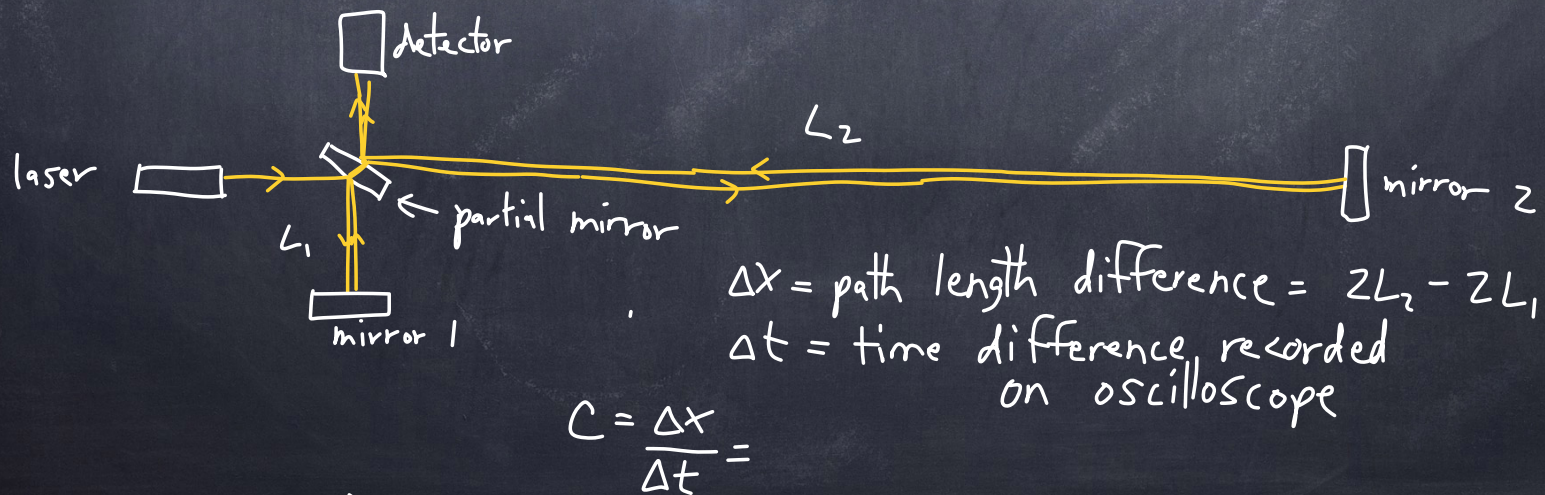 detector
L₂
laser
mirror 2
partial mirror
L₁
Δx = path length difference = 2L₂ - 2L₁
mirror 1
Δt = time difference, recorded
on oscilloscope
C = Δx/Δt =